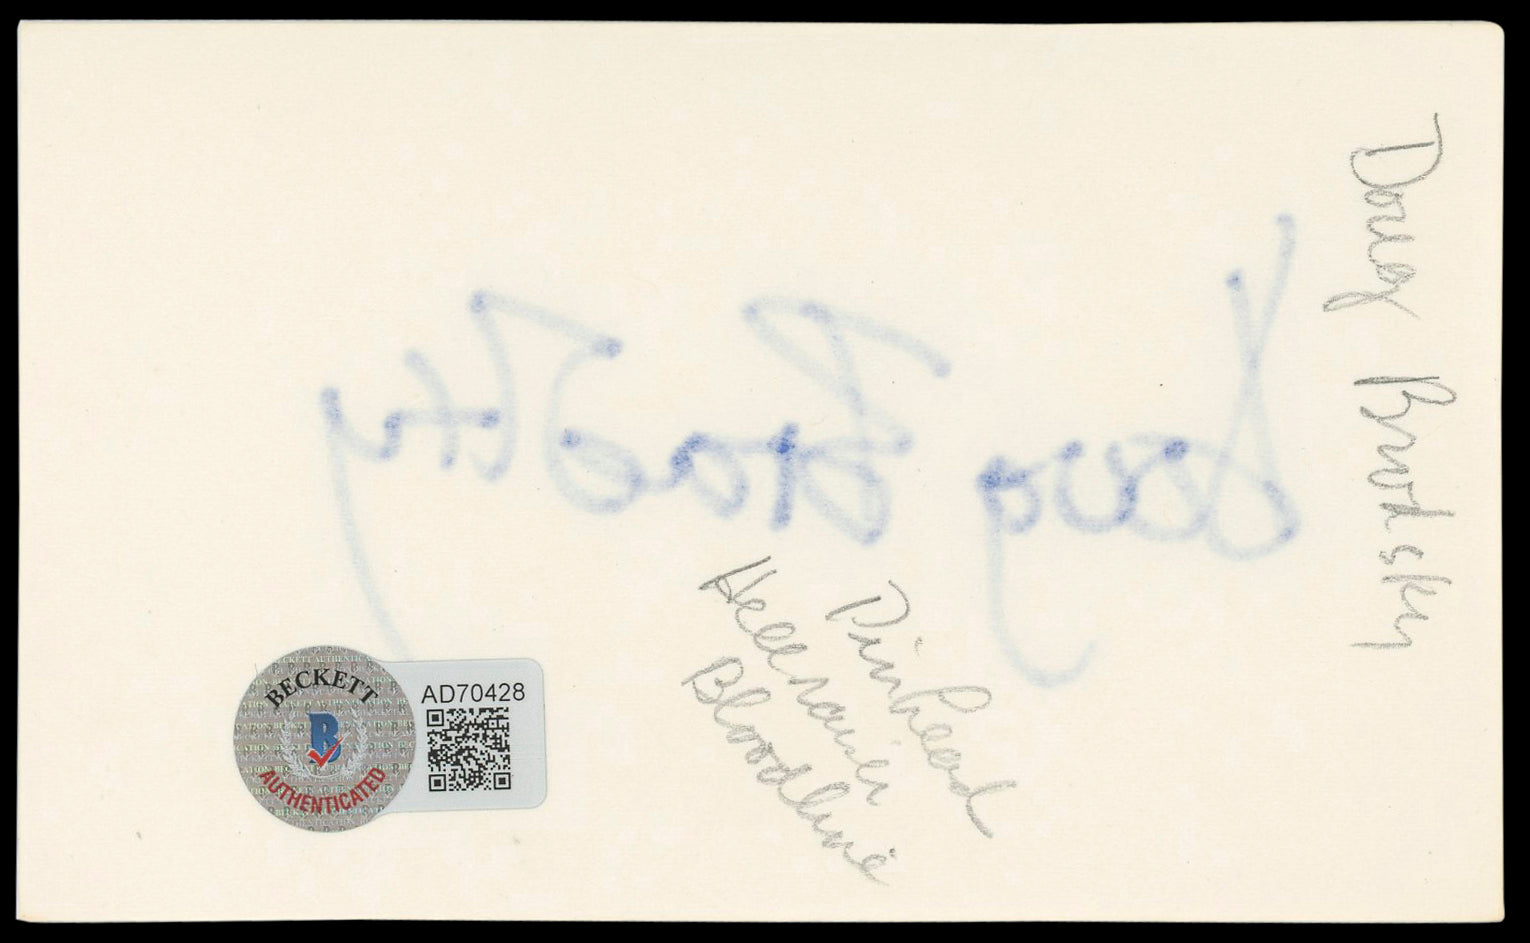 Doug Brodsky
Doug
Pinhead
Hellraiser
Bloodline
BECKETT
B
AUTHENTICATED
AD70428